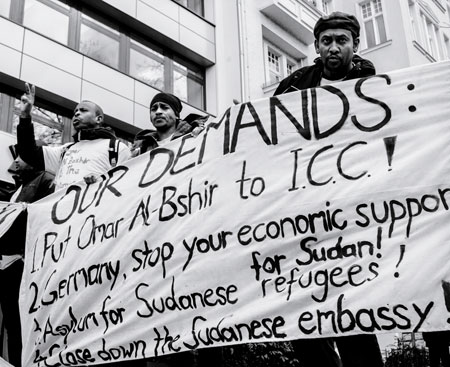 OUR DEMANDS:
1. Put Omar Al-Bshir to I.C.C.!
2. Germany, stop your economic support
for Sudan!
3. Asylum for Sudanese refugees!
4. Close down the Sudanese embassy!